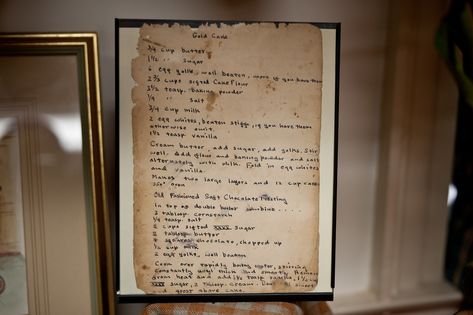 Gold Cake
3/4 cup butter
1 1/2 " sugar
6 egg yolks, well beaten, more if you have them
2 2/3 cups sifted Cake Flour
2 1/2 teasp. baking powder
1/4 " salt
3/4 cup milk
2 egg whites, beaten stiff, if you have them
otherwise omit.
1 1/2 teasp vanilla
Cream butter, add sugar, add yolks. Stir
well. Add flour and baking powder and salt
alternately with milk. Fold in egg whites
and vanilla.
Makes two large layers and 12 cup cakes
350° oven
Old Fashioned Soft Chocolate Frosting
In top of double boiler combine . . . . .
3 tablesp. cornstarch
1/4 teasp. salt
2 cups sifted sugar
2 tablesp butter
squares chocolate, chopped up
1/2 cup milk
2 egg yolks, well beaten
Cook over rapidly boiling water, stirring
constantly until thick and smooth. Remove
from heat and add 1 1/2 teasp vanilla, 1 1/2 cup
sugar, 2 tablesp. cream.
and frost above cake.